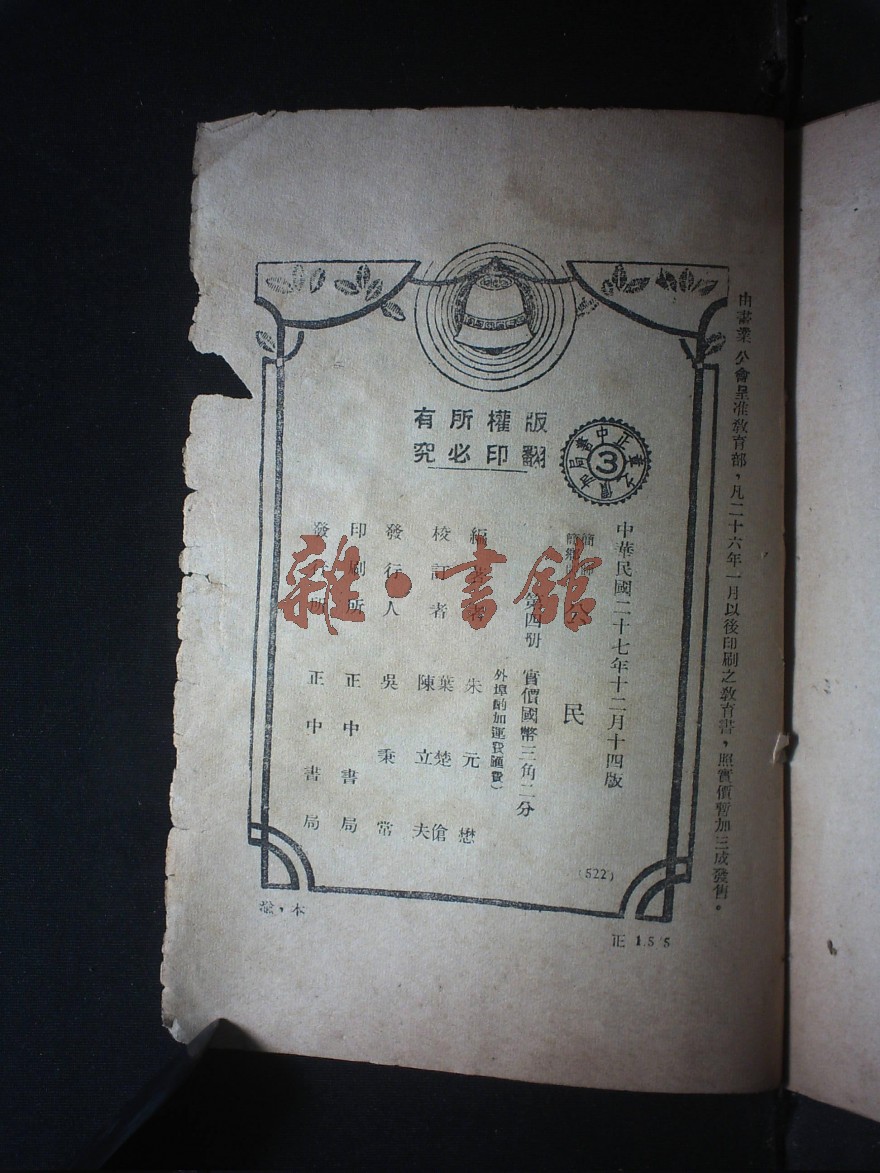 由書業公會呈准教育部，凡二十六年一月以後印刷之教育書，照實價暫加三成發售。
版權所有
翻印必究
正中書局
3
中華民國二十七年十二月十四版
公民
第四册 實價國幣三角二分
外埠酌加運費匯費)
編著者 朱元懋
校訂者 葉楚傖 陳立夫
發行人 吳秉常
印刷所 正中書局
發行所 正中書局
(522)
雜·書館
本，
正 1.5/5